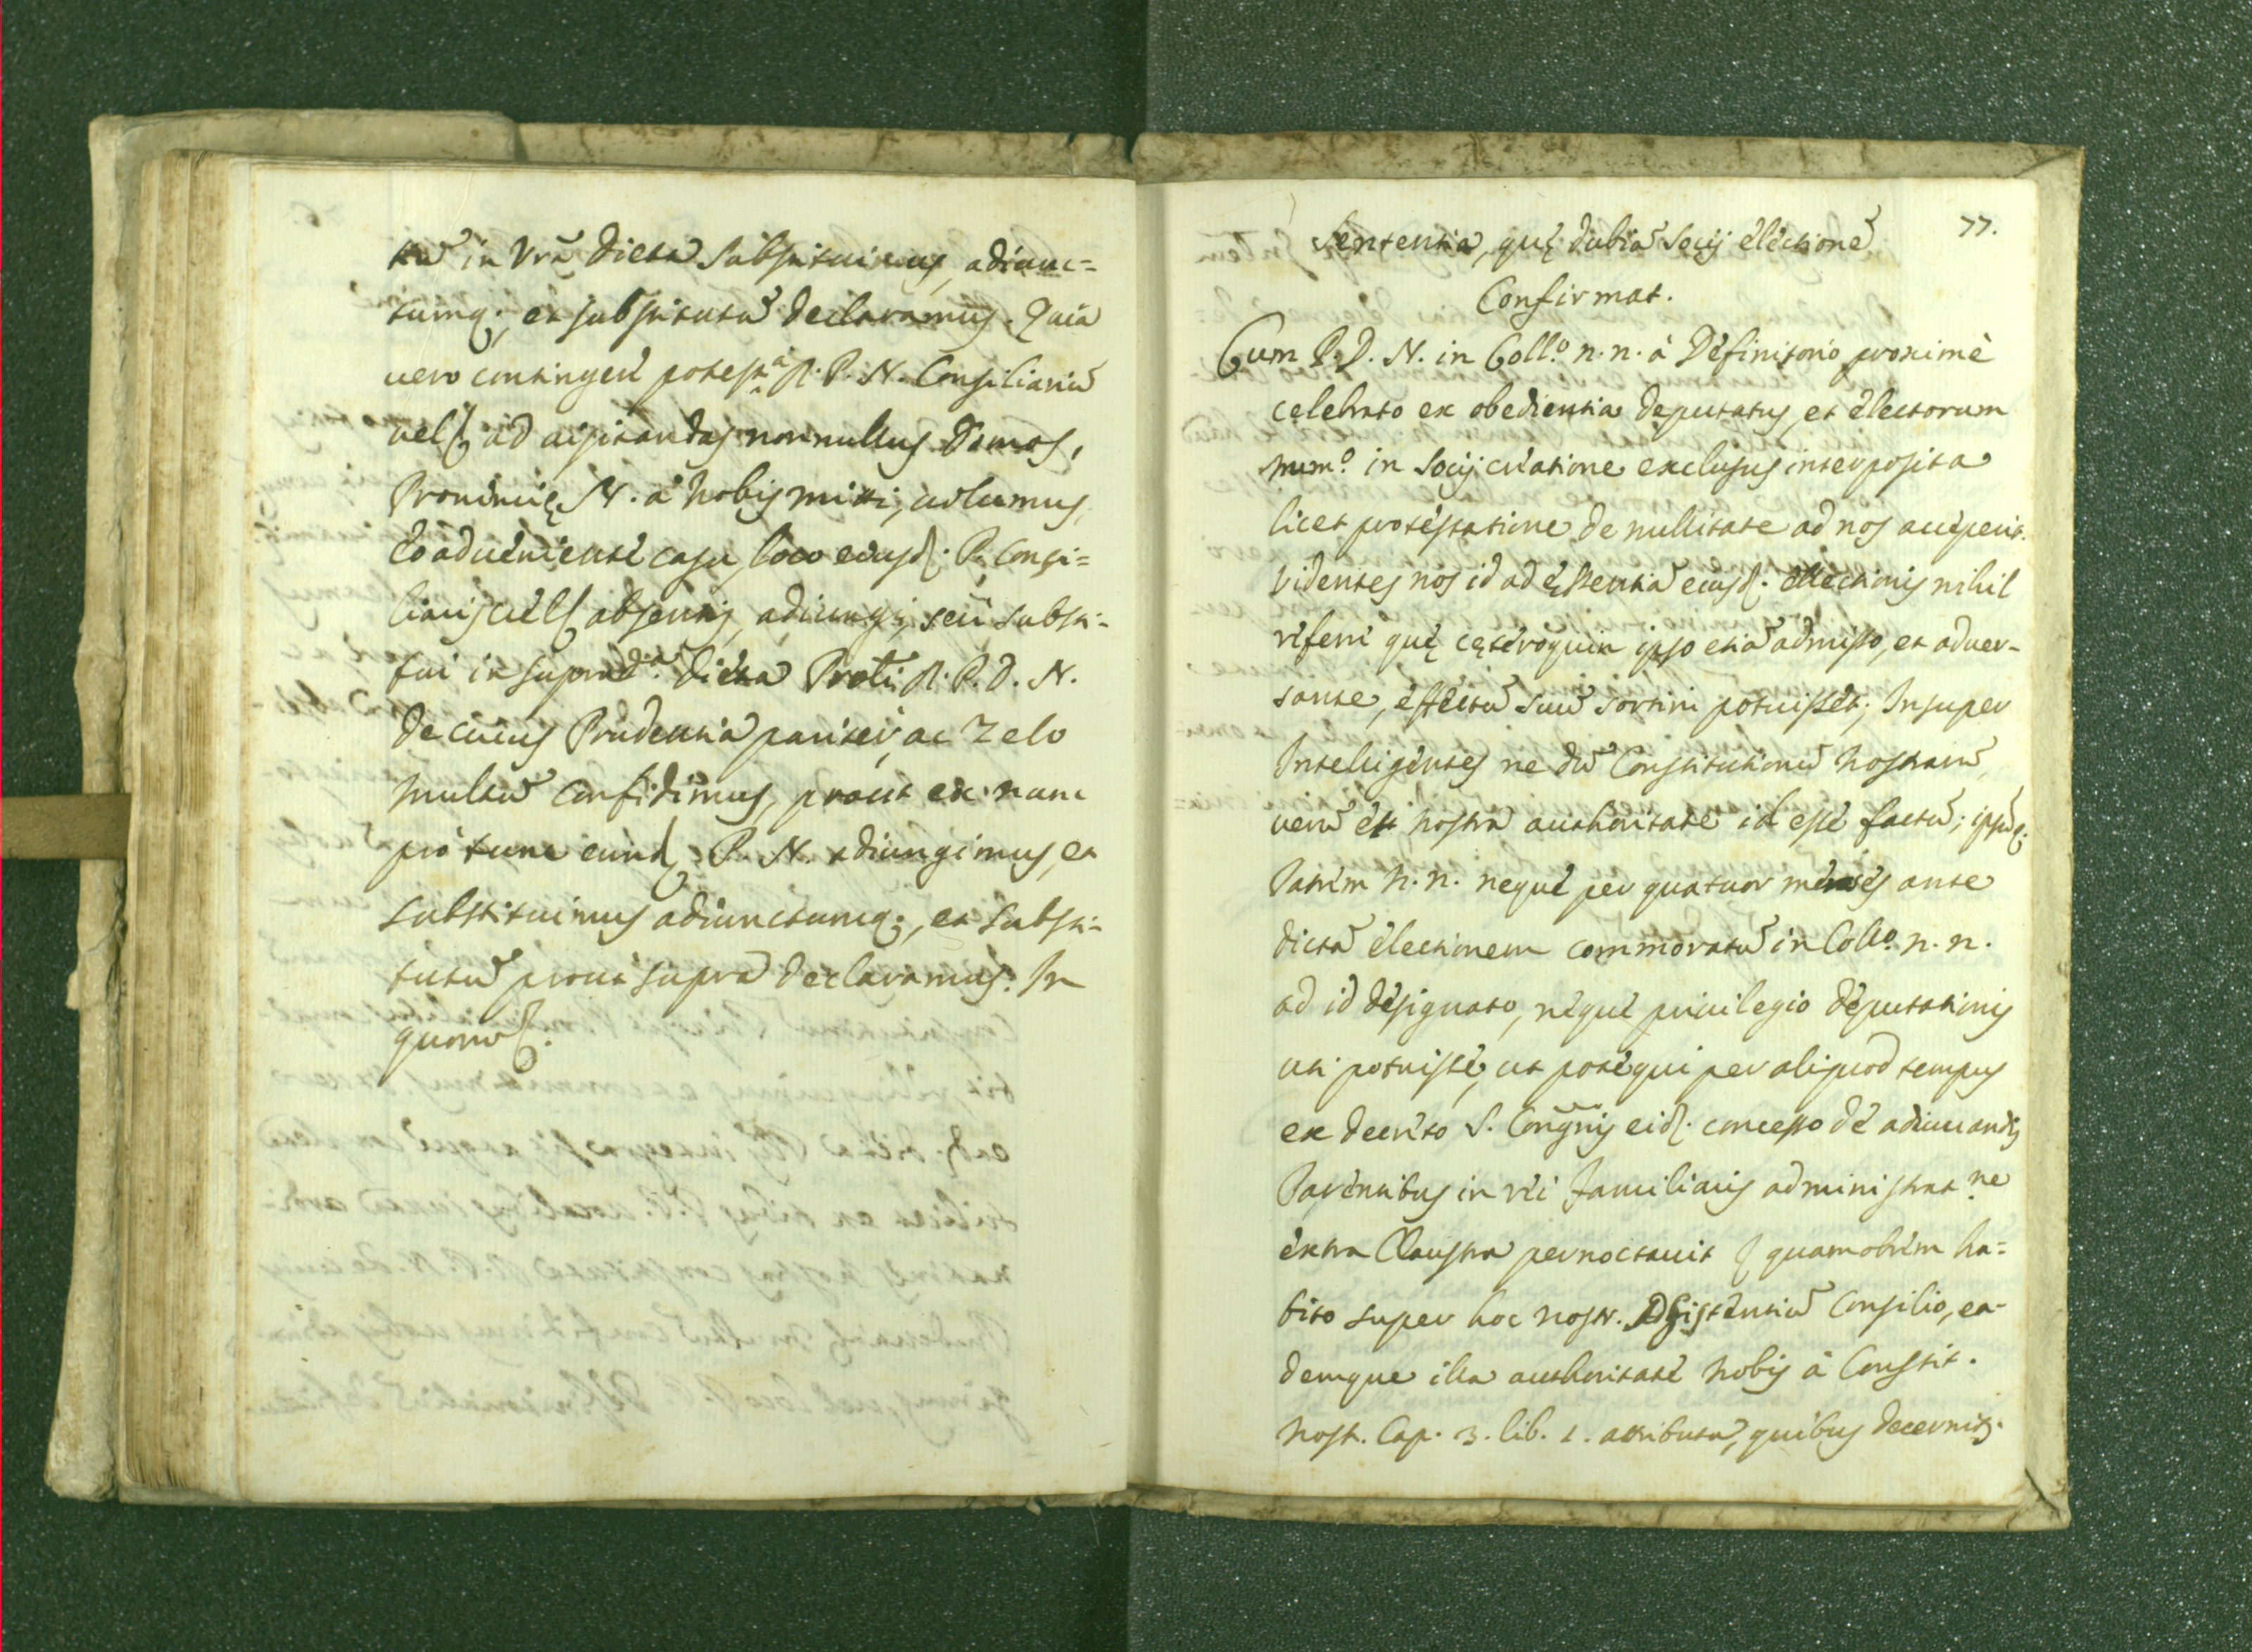 tū in Vrā dieta substituimus, adiunc=
tumq;, et substitutū declaramus. Quia
uero contingere potest à R. P. N. Consiliariū
ad uisitandas nonnullas Domos,
Prouincię N. à nobis mitti, uolumus,
eo adueniente casu, loco eiusd. P. Consi=
liarij absentis, adiungi, seu substi-
tui in suprad.ᵃ dieta Prāti R. P. D. N.
de cuius Prudentia pariter, ac Zelo
multū confidimus, prout ex nunc
pro tunc eund. P. N. adiungimus, et
substituimus adiunctumq;, et substi-
tutū prout supra declaramus. In
quorū &.
77.
Sententia, quę dubiā Socij electionē
Confirmat.
Cum P. D. N. in Coll.º n. n. à Definitorio proximè
celebrato ex obedientia deputatus, et electorum
num.º in Socij creatione exclusus interposita
licet protestatione de nullitate ad nos acceperit.
Videntes nos id ad ęssentiā eiusd. electionis nihil
referre quę cęteroquin ipso etiā admisso, et aduer-
sante, effectū suū sortiri potuisset; Insuper
Intelligentes ne dū Constitutionū nostrarū,
uerū et nostra authoritate id esse factū; ipsūq;
Patrem N. n. neque per quatuor menses ante
dictā electionem commoratū in Coll.º n. n.
ad id designato, neque priuilegio deputationis
uti potuisse, ut pote qui per aliquod tempus
ex decreto S. Congñis eid. concesso de adiuuandis
Parentibus in rei familiaris administrat.ne
extra Claustra pernoctauit; quamobrem ha=
bito super hoc nostr. Assistentiū Consilio, ea-
demque illa authoritate nobis à Constit.
nost. Cap. 3. lib. 1. attributa, quibus decernit.